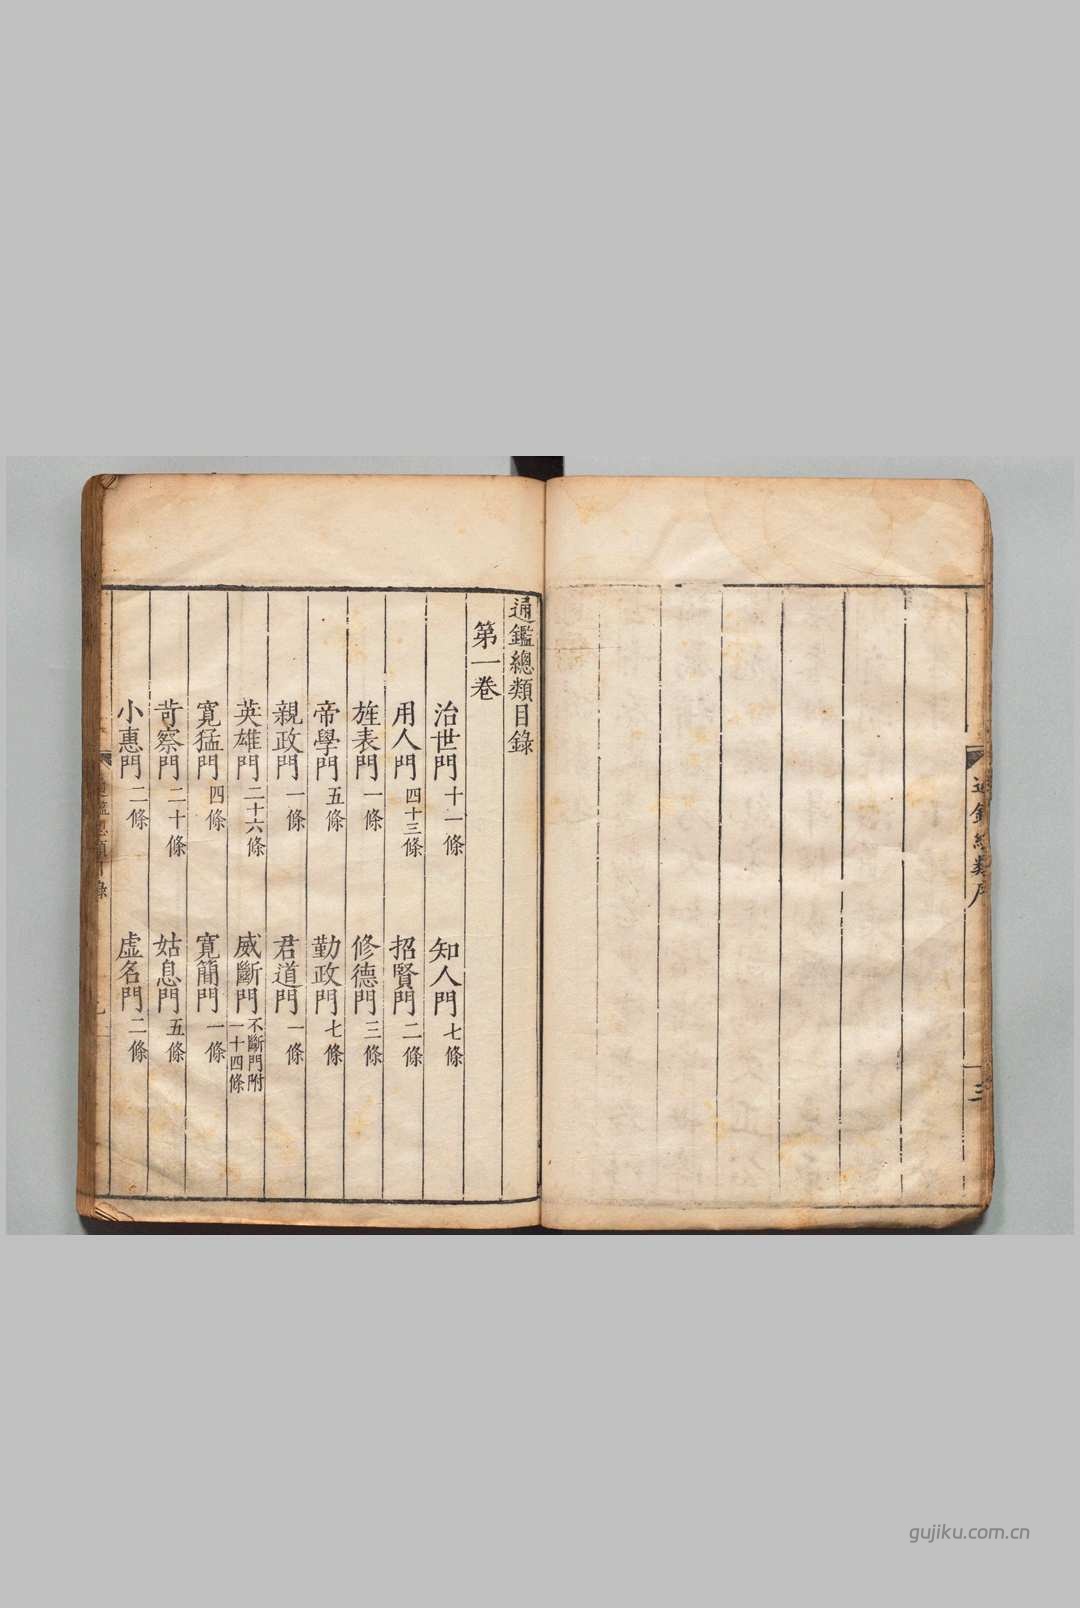 通鑑總類序
三
通鑑總類目錄
第一卷
治世門 十一條 知人門 七條
用人門 四十三條 招賢門 二條
旌表門 一條 修德門 三條
帝學門 五條 勤政門 七條
親政門 一條 君道門 一條
英雄門 二十六條 威斷門 不斷門附 一十四條
寬猛門 四條 寬簡門 一條
苛察門 二十條 姑息門 五條
小惠門 二條 虛名門 二條
通鑑總類目錄
gujiku.com.cn